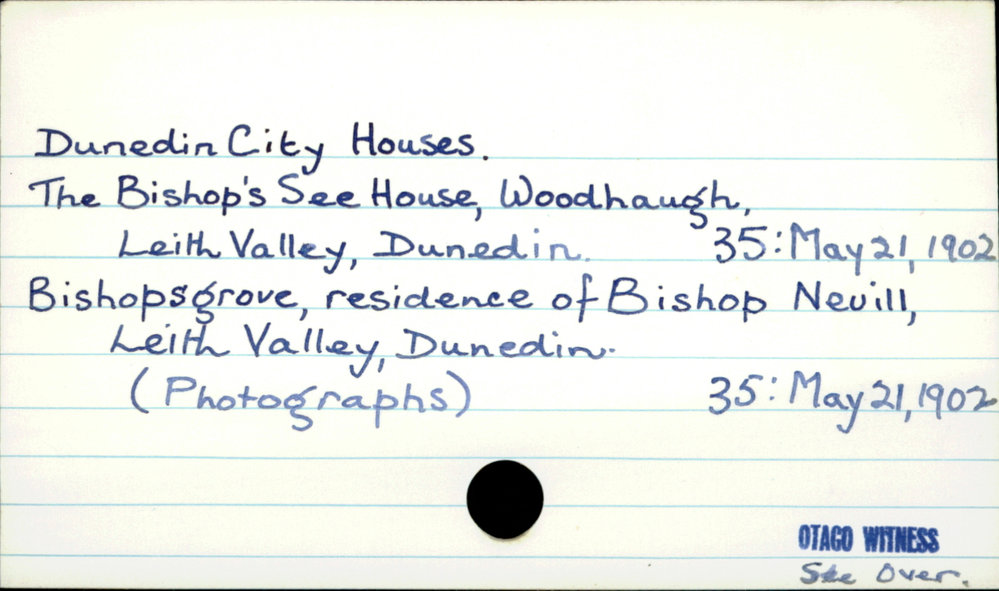 Dunedin City Houses.
The Bishop's See House, Woodhaugh,
Leith Valley, Dunedin. 35: May 21, 1902
Bishopsgrove, residence of Bishop Nevill,
Leith Valley, Dunedin.
(Photographs) 35: May 21, 1902
OTAGO WITNESS
See Over.